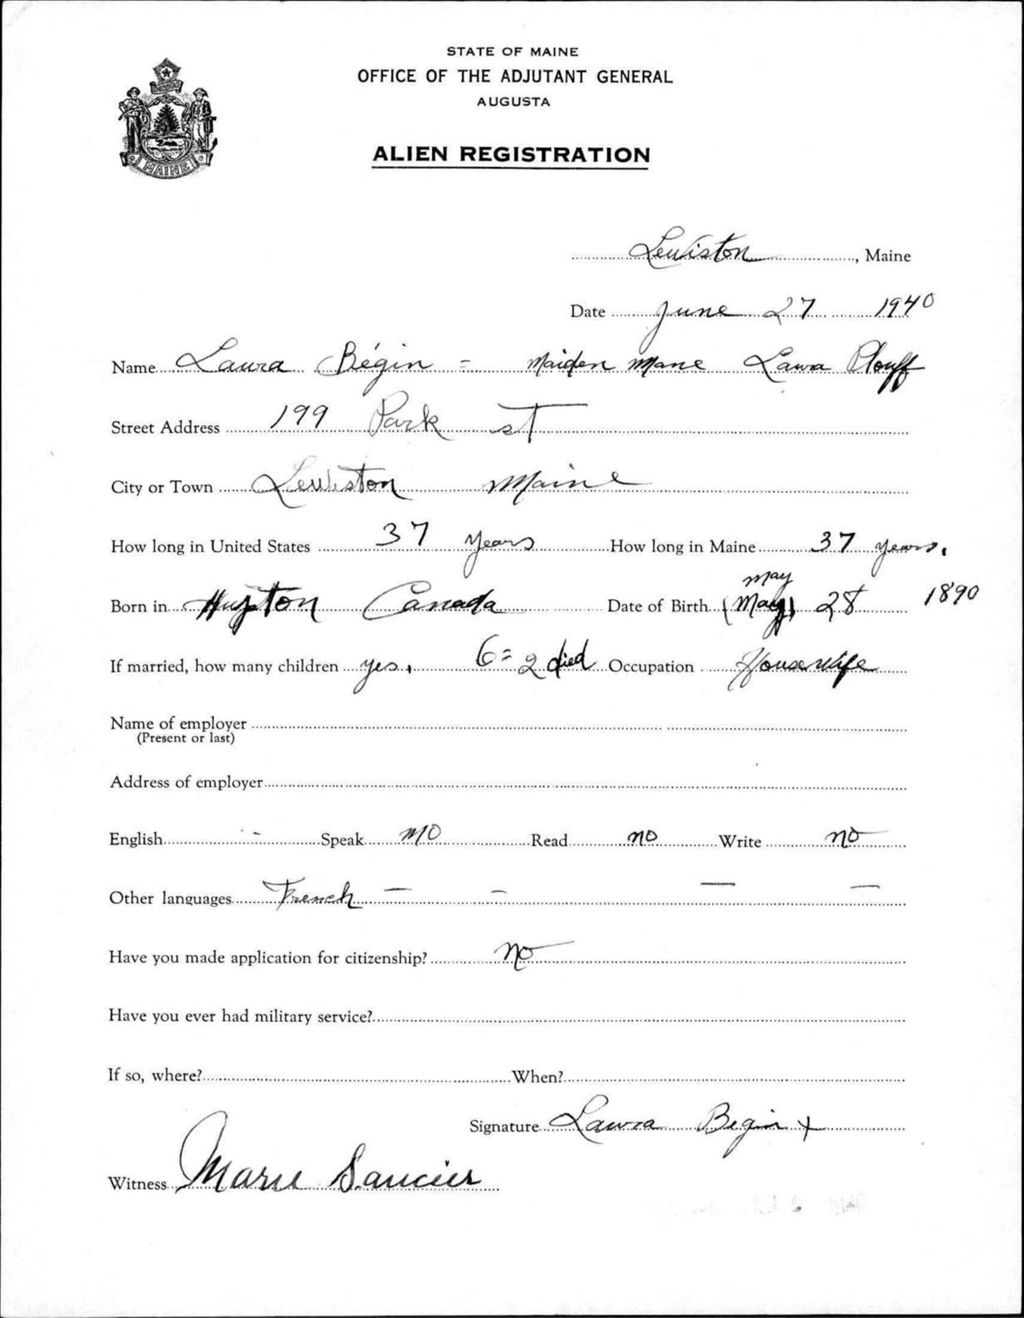 STATE OF MAINE
OFFICE OF THE ADJUTANT GENERAL
AUGUSTA
ALIEN REGISTRATION
MAINE
Lewiston, Maine
Date June 27 1940
Name Laura Bégin = Maiden Mane Laura Plouff
Street Address 199 Park st
City or Town Lewiston Maine
How long in United States 37 Years How long in Maine 37 years.
may
Born in Canada Date of Birth (May) 28 1890
If married, how many children yes, 6 = 2 died Occupation Housewife
Name of employer
(Present or last)
Address of employer
English - Speak no Read no Write no
Other languages French - - - -
Have you made application for citizenship? no
Have you ever had military service?
If so, where? When?
Signature Lawra Begin x
Witness Marie Saucier